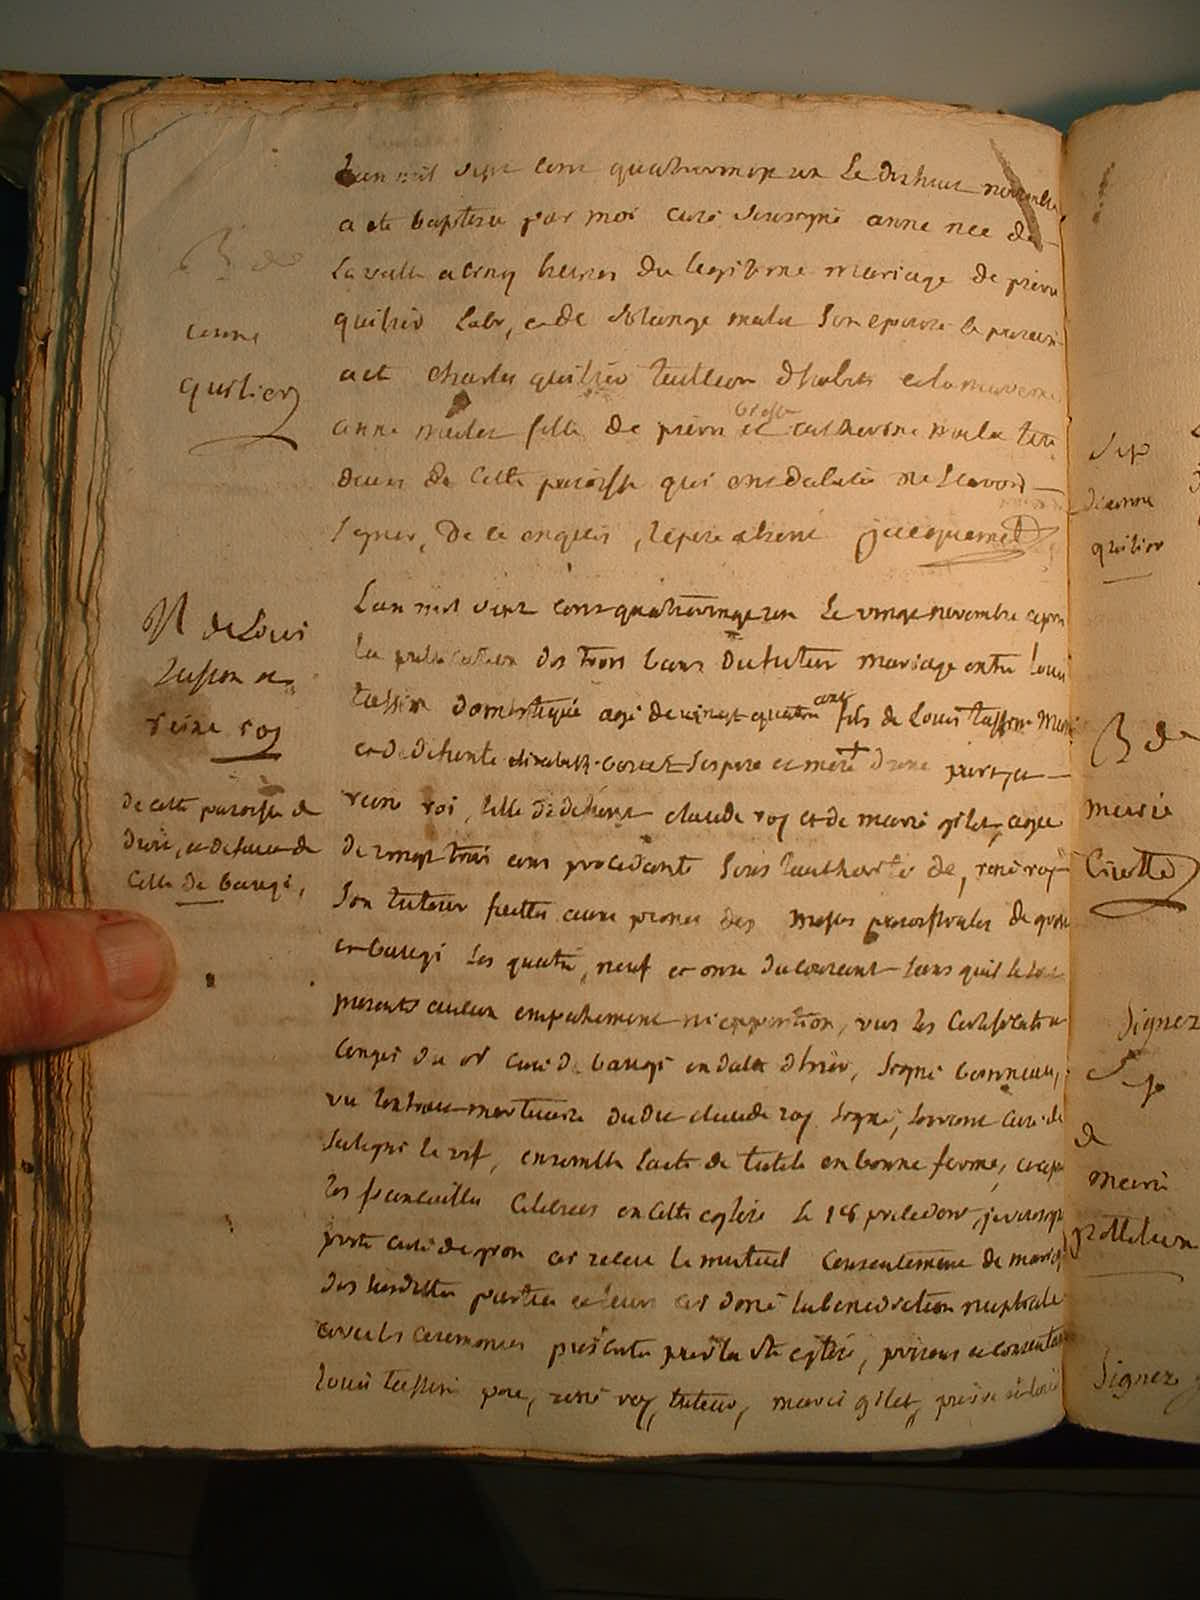 B de
anne
quilier
Lan mil sept cent quatrevingt un Le dixhuit novembre
a ete baptisé par moi curé soussigné anne nee de
la veille a cinq heures du legitime mariage de pierre
quilier Labr, et de solange malet son epouse le parein
a et charles quilier tailleur d'habits et la mareine
anne malet fille de pierre et catherine malet
de cette paroisse qui ont declaré ne scavoir
signer, de ce enquis, le pere absent jacquemet
M de Louis
tassin et
reine roy
de cette paroisse de
droit, et de fait de
celle de baugi,
Lan mil sept cent quatrevingt un Le vingt novembre apres
la publication des trois bans du futur mariage entre Louis
tassin domestique agé de vingt quatre ans fils de Louis tassin
et de defunte elizabeth ses pere et mere d'une part, et
reine roi, fille de defunt claude roy et de marie gilet, agée
de vingt trois ans procedante sous l'authorité de, rené roy
son tuteur faittes aux prones des messes paroissiales de
et baugi les quatre, neuf et onze du courant sans quil
presents aucun empechement ni opposition, vus les certificat et
congés du sr curé de baugi en date d'hier, signé
vu lextrait mortuaire dudit claude roy signé, curé de
saligni le vif, ensemble lacte de tutele en bonne forme, et apres
les fiancailles celebrees en cette eglise le 18 precedent, je soussigné
pretre curé de ai receu le mutuel consentement de mariage
des susdittes parties et leur ai doné la benediction nuptiale
avec les ceremonies prescrites par la ste eglise, presens et consentans
Louis tassin pere, rené roy, tuteur, marie gilet,
Sep
d'anne
quilier
B de
marie
Signez
Sep
de
marie
Signez